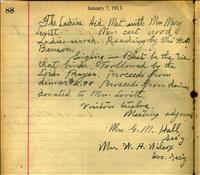 88
January 7, 1913
The Ladies Aid Met with Mrs Mary
Levitt. Men cut wood
Ladies served. Reading by Mrs
Benson.
Singing - Blest be the tie
that binds. Followed by the
Lords Prayer. Proceeds from
dinner Proceeds from dinner
donated to Mrs Levitt.
Visitors twelve.
Meeting adjourned
Mrs. G. M. Hall
Sec'y
Mrs. W. H. Wilcox
Ass. Sec'y